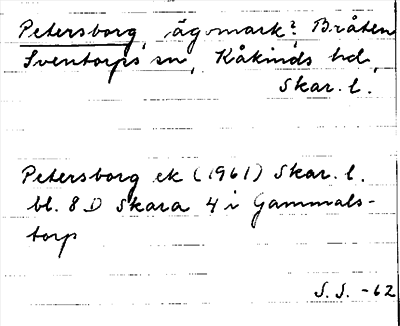 Petersborg, ägomark? Bråten
Sventorps sn, Kåkinds hd,
Skar. l.
Petersborg ek (1961) Skar. l.
bl. 8 D Skara 4 i Gammals-
torp
S.S. -62